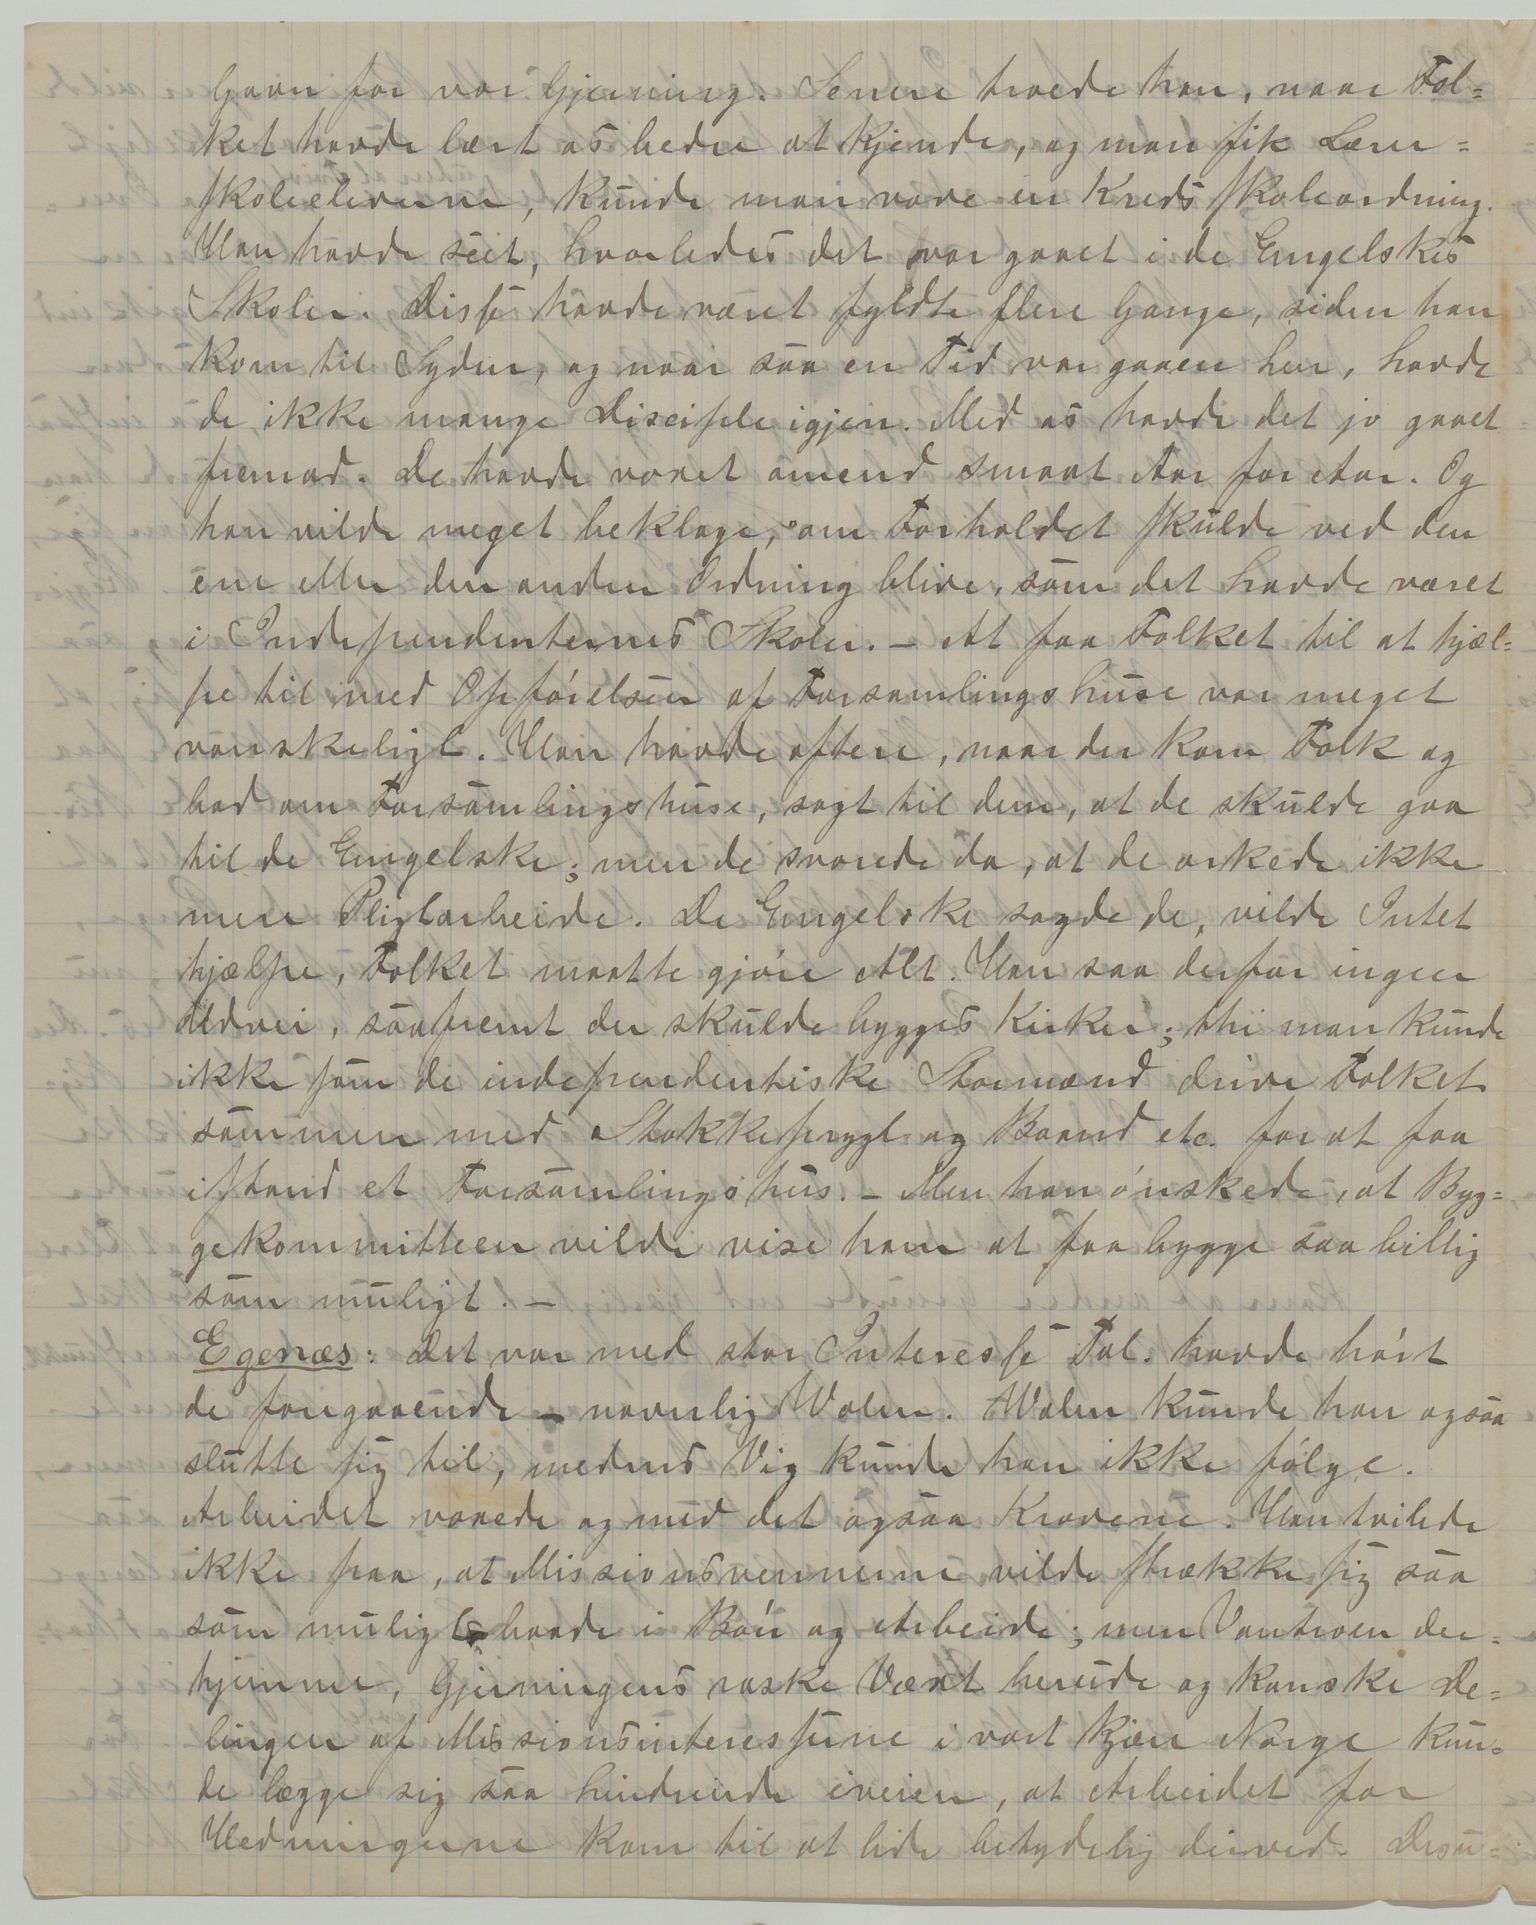 Gavn for vor Gjerning. Senere troede han, naar Fol=
ket havde lært os bedre at kjende, og man fik Lærer=
skoleeleverne, kunde man vove en Kreds skoleordning.
Han havde seet, hvorledes det var gaaet i de Engelskes
Skoler. Disse havde været fyldte flere Gange, siden han
kom til Syden, og naar saa en Tid var gaaen hen, havde
de ikke mange Disciple igjen. Med os havde det jo gaaet
fremad. De havde voxet omend smaat Aar for Aar. Og
han vilde meget beklage, om Forholdet skulde ved den
ene eller den anden Ordning blive, som det havde været
i Independenternes Skoler. – At faa Folket til at hjæl=
pe til med Opførelsen af Forsamlingshuse var meget
vanskeligt. Han havde oftere, naar der kom Folk og
bad om Forsamlingshuse, sagt til dem, at de skulde gaa
til de Engelske; men de svarede da, at de orkede ikke
mere Pligtarbeide. De Engelske sagde de, vilde Intet
hjælpe, Folket maatte gjøre Alt. Han saa derfor ingen
Udvei, saafremt der skulde bygges Kirker; thi man kunde
ikke som de independentiske Stormænd drive Folket
sammen med Stokkeprygl og Baand etc. for at faa
istand et Forsamlingshus. – Men han ønskede, at Byg=
gekommitteen vilde vise ham at faa bygge saa billig
som muligt. –
Egenæs: Det var med stor Interesse Tal. havde hørt
de foregaaende – navnlig Walen. Walen kunde han ogsaa
slutte sig til, medens Vig kunde han ikke følge.
Arbeidet voxede og med det ogsaa Kravene. Han tvilede
ikke paa, at Missionsvennerne vilde strække sig saa
som muligt baade i Bøn og Arbeide; men Vantroen der=
hjemme, Gjerningens raske Væxt herude og kanske De=
lingen af Missionsinteresserne i vort kjære Norge kun=
de lægge sig saa hindrende iveien, at Arbeidet for
Hedningerne kom til at lide betydelig derved. Desu=